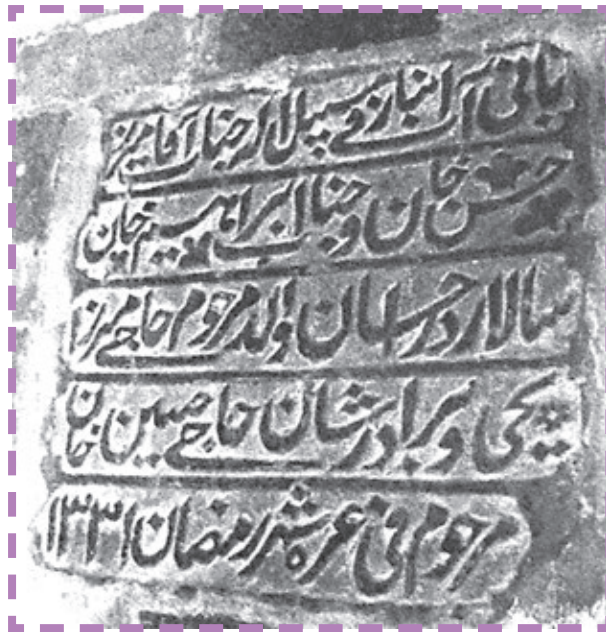 بانی آب انبار و سپلار جناب آقا میرزا
حسن خان و جناب ابراهیم خان
سالار والد مرحوم حاجی میرزا
یحیی و برادرشان حاجی حسین خان
مرحوم فی غره شهر رمضان ۱۳۳۱